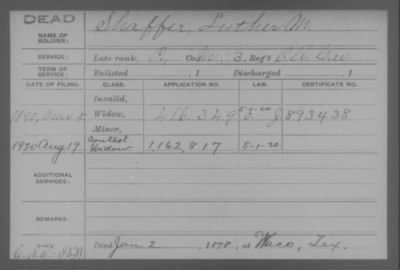 DEAD
NAME OF SOLDIER: Shaffer, Luther M.
SERVICE: Late rank, Co. 3, Reg't Cav
TERM OF SERVICE: Enlisted , 1 Discharged , 1
DATE OF FILING. CLASS. APPLICATION NO. LAW. CERTIFICATE NO.
Invalid,
Widow, 416.349 893438
Minor,
1920 Aug 19 Contest Widow 1,162,817 5-1-20
ADDITIONAL SERVICES:
REMARKS:
Died Jan 2, 1878, at Waco, Tex.